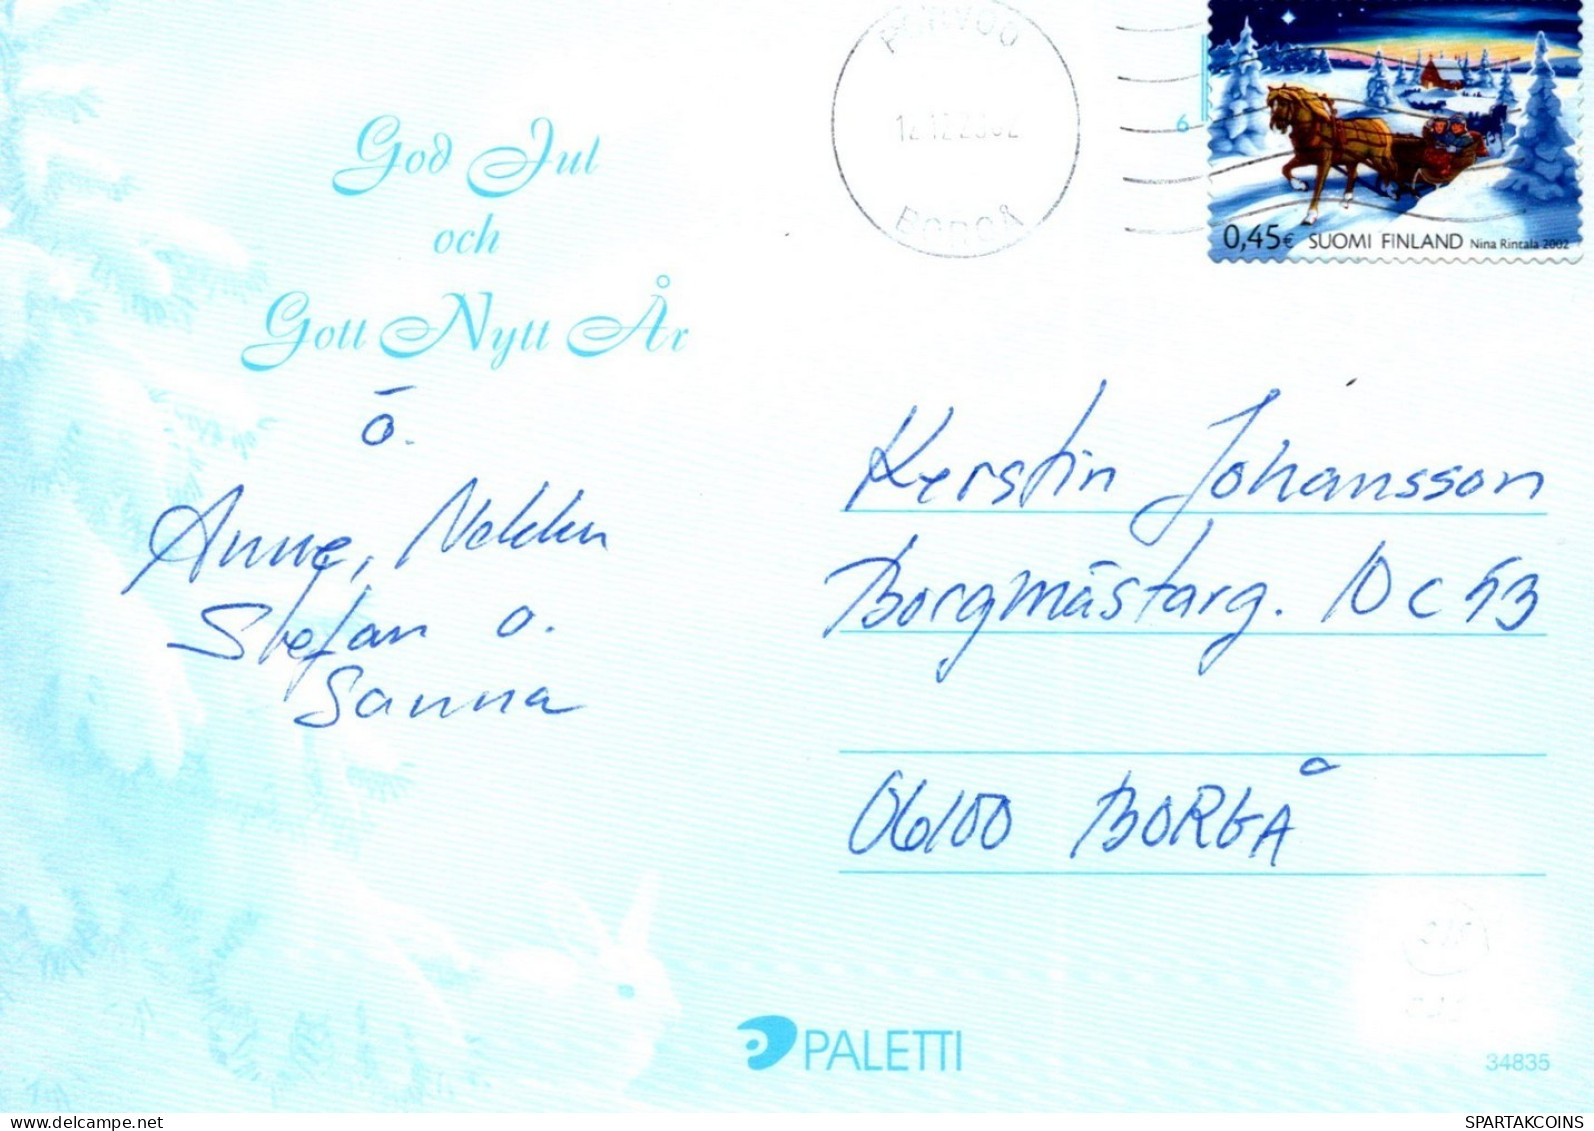 God Jul
och
Gott Nytt År
ö.
Anne,
Stefan o.
Sanna
PORVOO
BORGÅ
6
0,45€ SUOMI FINLAND Nina Rintala 2002
Kerstin Johansson
Borgmästarg. 10 C 53
06100 BORGÅ
PALETTI
34835
SPARTAKCOINS